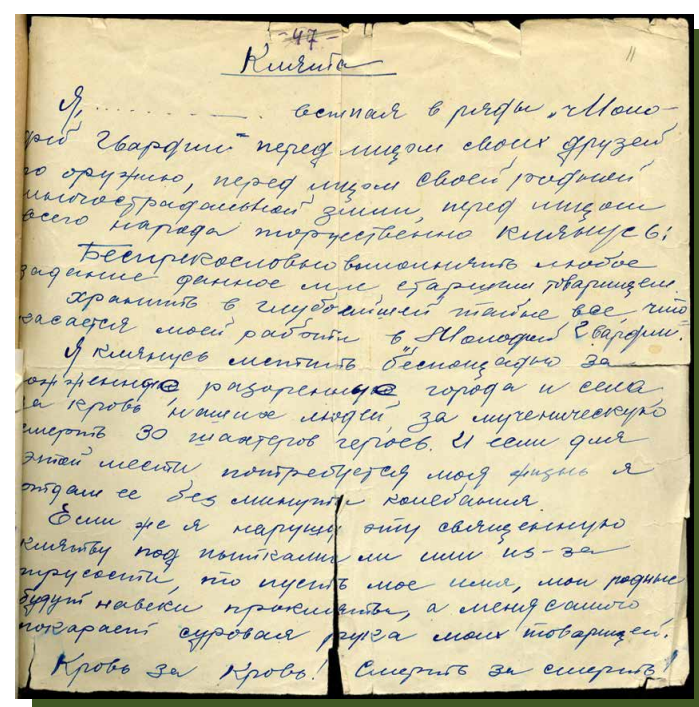 -47-
11
Клятва
Я, .............. вступая в ряды „Моло-
дой Гвардии" перед лицом своих друзей
по оружию, перед лицом своей родной
многострадальной земли, перед лицом
всего народа торжественно клянусь:
Беспрекословно выполнять любое
задание данное мне старшим товарищем.
хранить в глубочайшей тайне все, что
касается моей работы в „Молодой Гвардии."
Я клянусь мстить беспощадно за
сожженные разоренные города и села
за кровь наших людей, за мученическую
смерть 30 шахтеров героев. И если для
этой мести потребуется моя жизнь я
отдам ее без минуты колебания.
Если же я нарушу эту священную
клятву под пытками ли или из-за
трусости, то пусть мое имя, мои родные
будут навеки прокляты, а меня самого
покарает суровая рука моих товарищей.
Кровь за Кровь! Смерть за смерть!